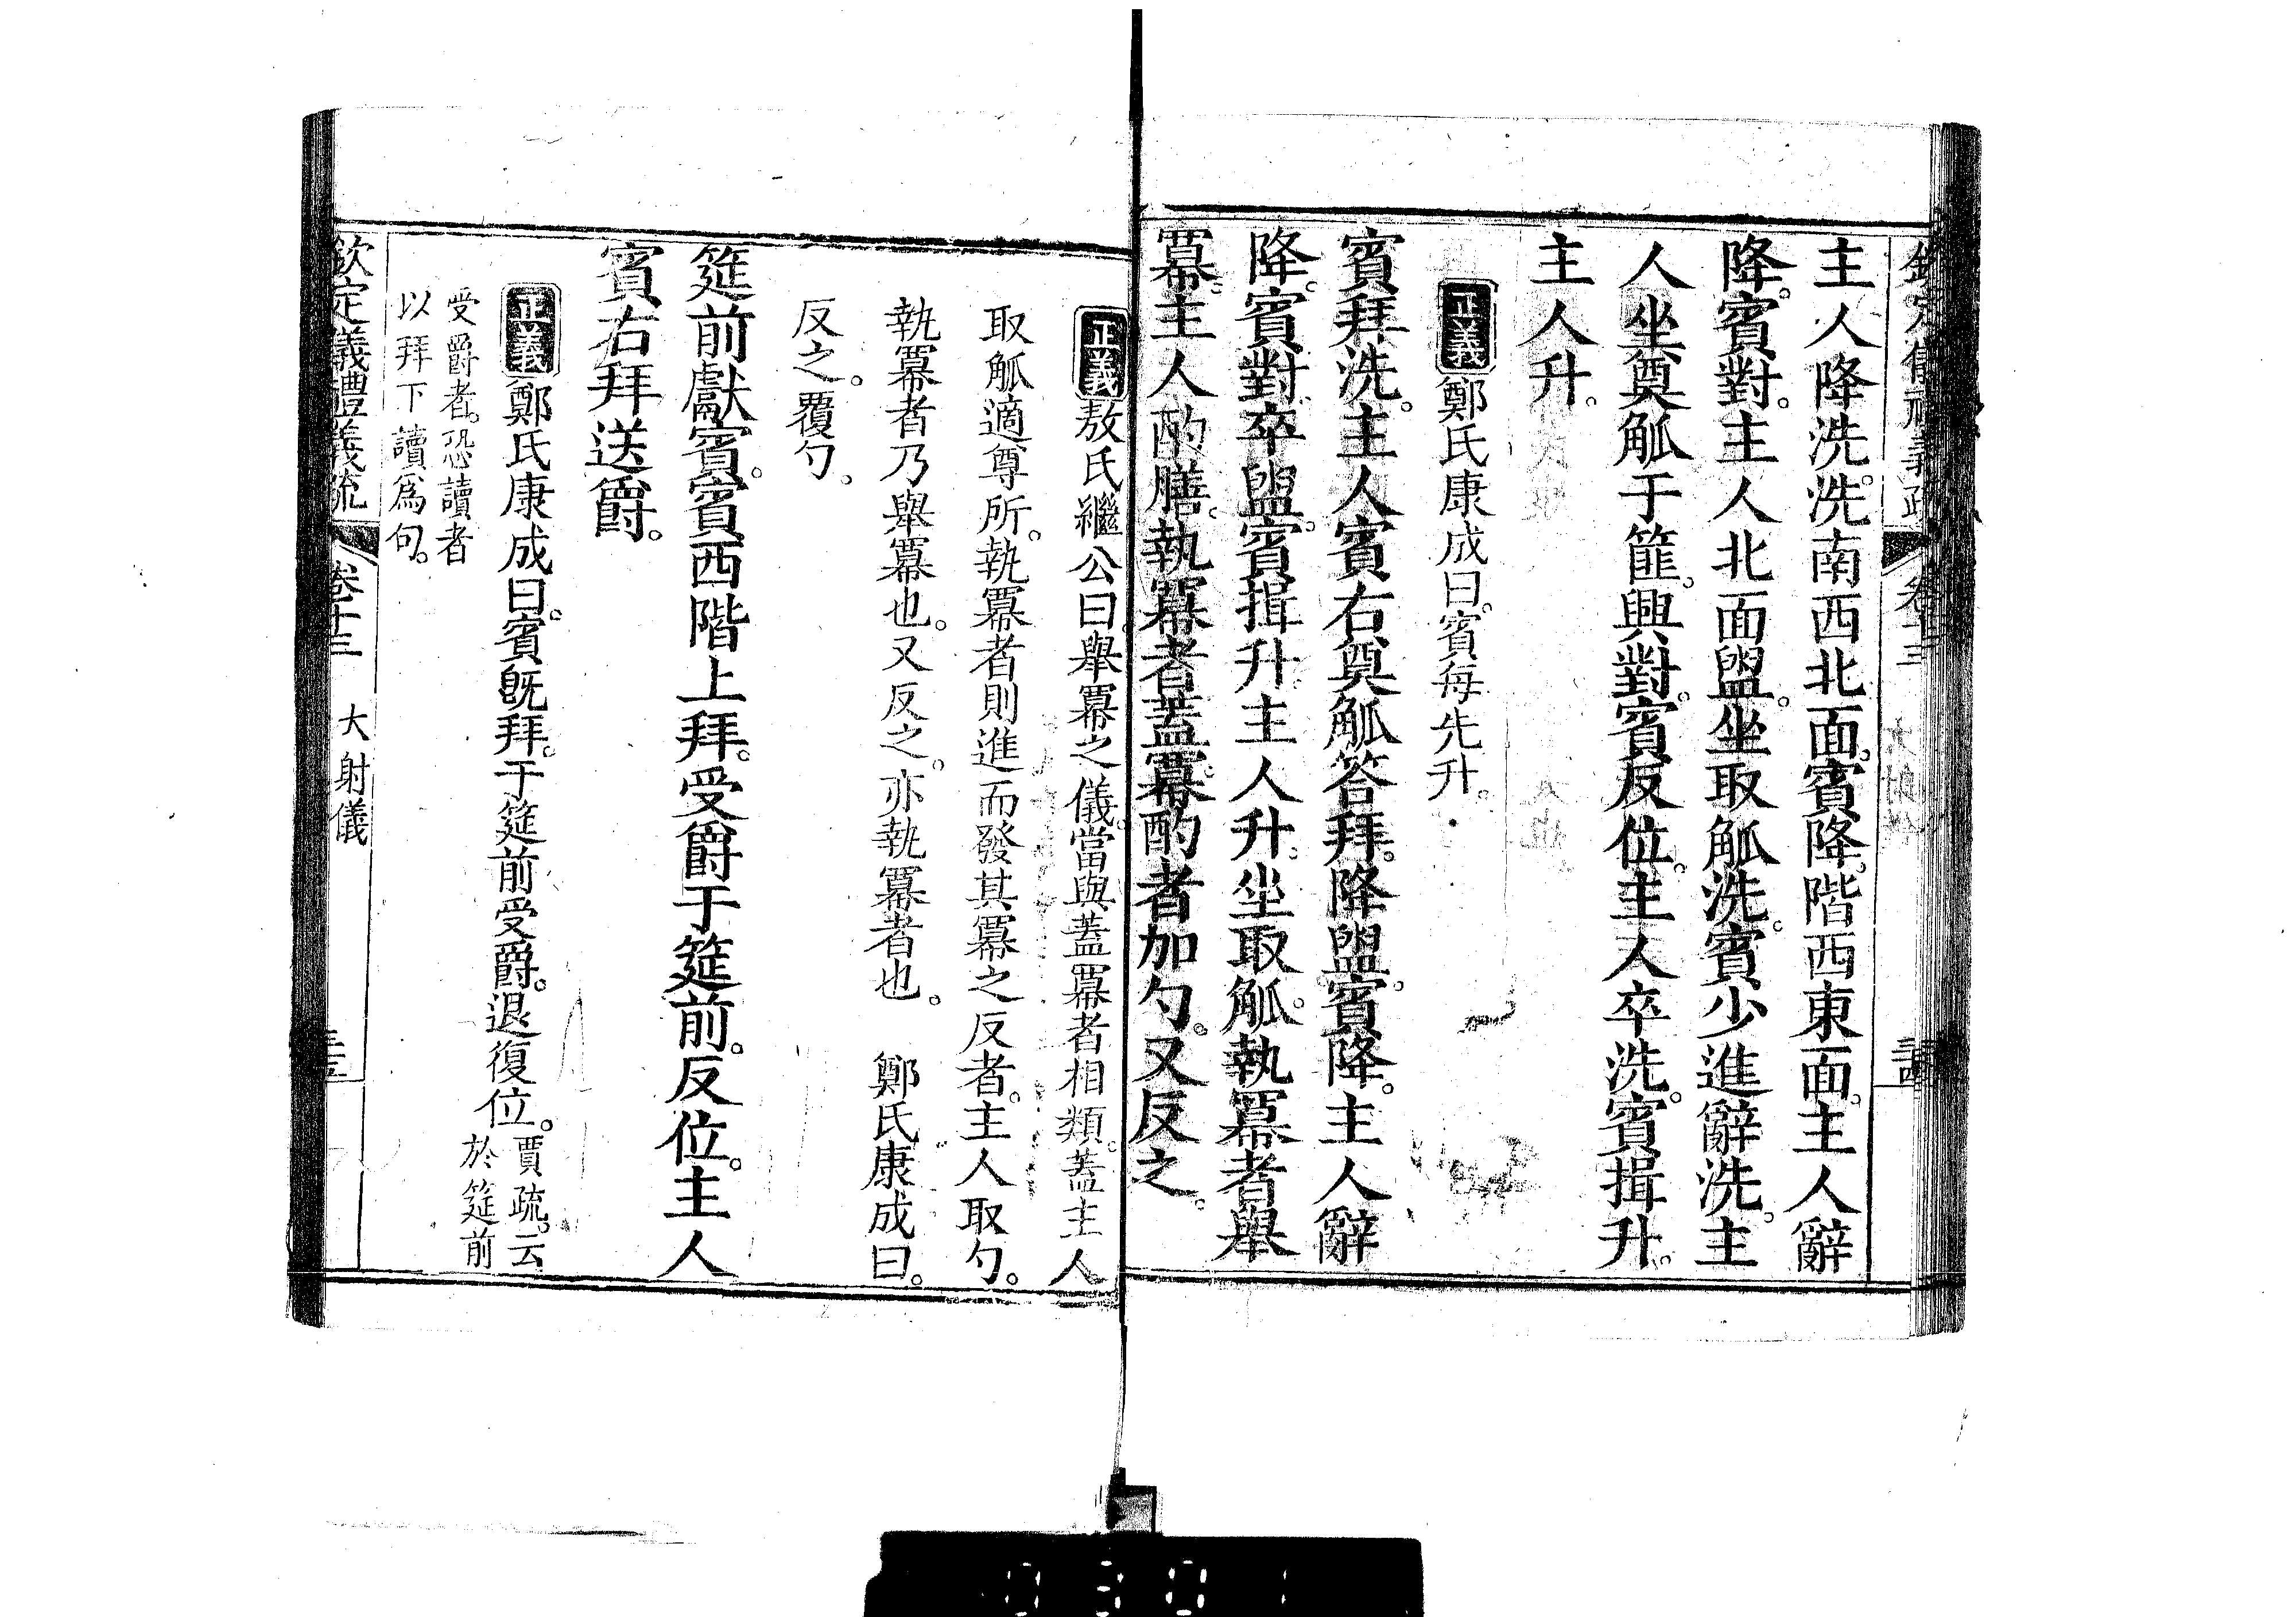 主人降洗。洗南西北面。賓降。階西東面。主人辭
降。賓對。主人北面盥。坐取觚洗。賓少進辭洗。主
人坐奠觚于篚。興對。賓反位。主人卒洗。賓揖升。
主人升。
正義鄭氏康成曰。賓每先升。
賓拜洗。主人賓右奠觚答拜。降盥。賓降。主人辭
降。賓對。卒盥。賓揖升。主人升。坐取觚。執冪者舉
冪。主人酌膳。執冪者蓋冪。酌者加勺。又反之。
正義敖氏繼公曰。舉冪之儀。當與蓋冪者相類。蓋主人
取觚適尊所。執冪者則進而發其冪之反者。主人取勺。
執冪者乃舉冪也。又反之。亦執冪者也。 鄭氏康成曰。
反之。覆勺。
筵前獻賓。賓西階上拜。受爵于筵前。反位。主人
賓右拜送爵。
正義鄭氏康成曰。賓旣拜。于筵前受爵。退復位。賈疏。云
於筵前
受爵者。恐讀者
以拜下讀爲句。
欽定儀禮義疏 卷十三 大射儀